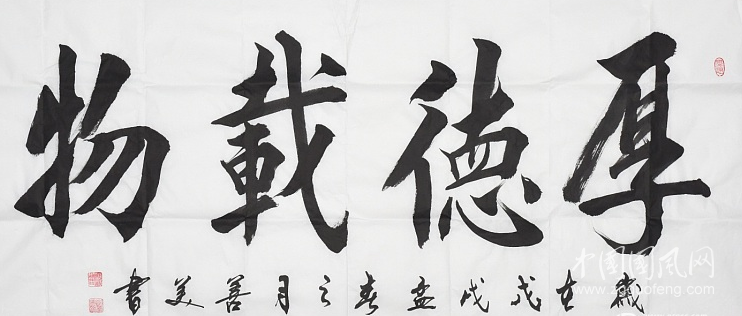 厚德載物
歲在戊戌孟春之月善美書
中国国风网
www.zgguofeng.com